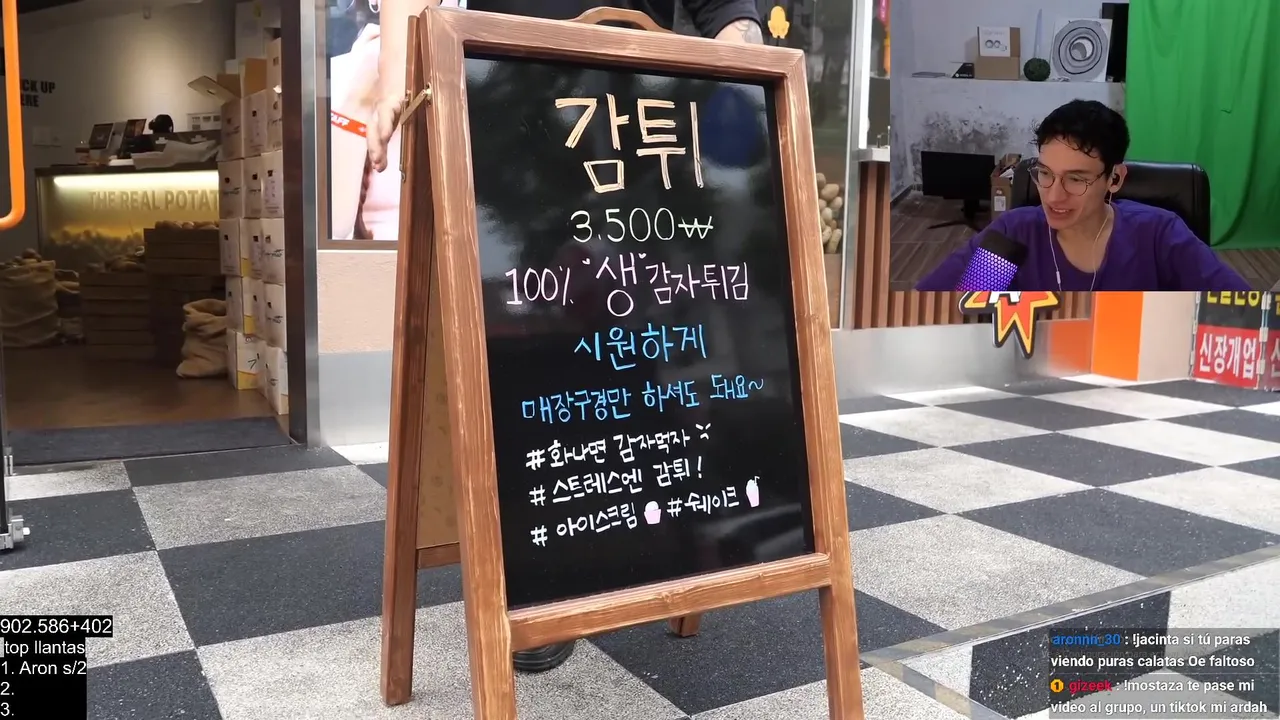 감튀
3.500₩
100% "생"감자튀김
시원하게
매장구경만 하셔도 돼요~
#화나면 감자먹자
#스트레스엔 감튀!
#아이스크림 #쉐이크
THE REAL POTAT
신장개업
902.586+402
top llantas
1. Aron s/2
2.
3.
aronnn_30 : !jacinta si tú paras
viendo puras calatas Oe faltoso
gizeek : !mostaza te pase mi
video al grupo, un tiktok mi ardah